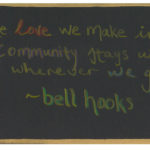 e love we make in
Community stays w
wherever we g
~bell hooks